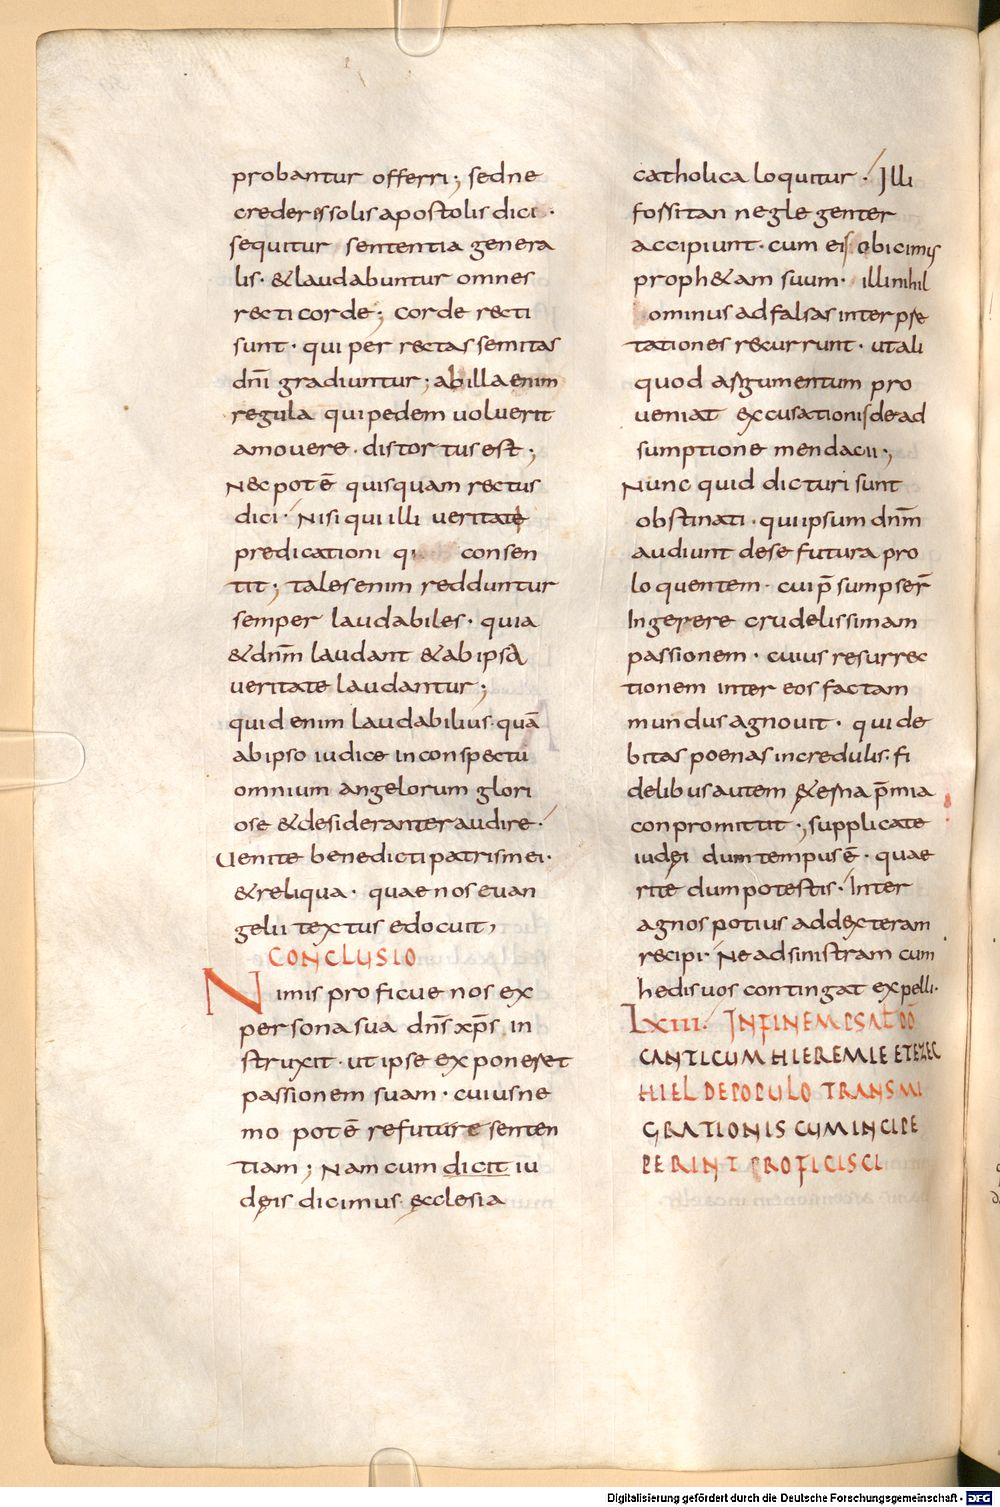 probantur offerri; sedne
crederes solis apostolis dici ·
sequitur sententia genera
lis· & laudabuntur omnes
recti corde; corde recti
sunt· qui per rectas semitas
dñi gradiuntur; ab illa enim
regula qui pedem uoluerit
amouere· distortus est;
Nec pot ē quisquam rectus
dici· Nisi qui illi ueritate
predicationi consen
tit; tales enim redduntur
semper laudabiles· quia
& dnm̄ laudant & ab ipsa
ueritate laudantur;
quid enim laudabilius quā
ab ipso iudice in conspectu
omnium angelorum glori
ose & desideranter audire·
Uenite benedicti patris mei·
& reliqua· quae nos euan
gelii textus edocuit,
CONCLUSIO
Nimis proficue nos ex
persona sua dn̄s xp̄s in
struxit· ut ipse exponeret
passionem suam· cuius ne
mo pot ē refutare senten
tiam; Nam cum dicit iu
dęis dicimus ęcclesia
catholica loquitur· Illi
forsitan neglegenter
accipiunt· cum eis obicimis
proph&am suum· illi nihil
ominus ad falsas interpre
tationes recurrunt· ut ali
quod argumentum pro
ueniat excusationis de ad
sumptione mendacii;
Nunc quid dicturi sunt
obstinati· qui ipsum dnm̄
audiunt de se futura pro
loquentem· cui p̄sumpser̄
Ingerere crudelissimam
passionem· cuius resurrec
tionem inter eos factam
mundus agnouit· qui de
bitas poenas incredulis· fi
delibus autem &erna p̄mia
conpromittit; supplicate
iudęi dum tempus ē· quae
rite dum potestis· Inter
agnos potius ad dexteram
recipi· Ne ad sinistram cum
hedis uos contingat expelli·
LXIII· IN FINEM PSAL DD
CANTICUM HIEREMIE ET EZEC
HIEL DE POPULO TRANSMI
GRATIONIS CUM INCIPE
PERINT PROFICISCI
Digitalisierung gefördert durch die Deutsche Forschungsgemeinschaft - DFG